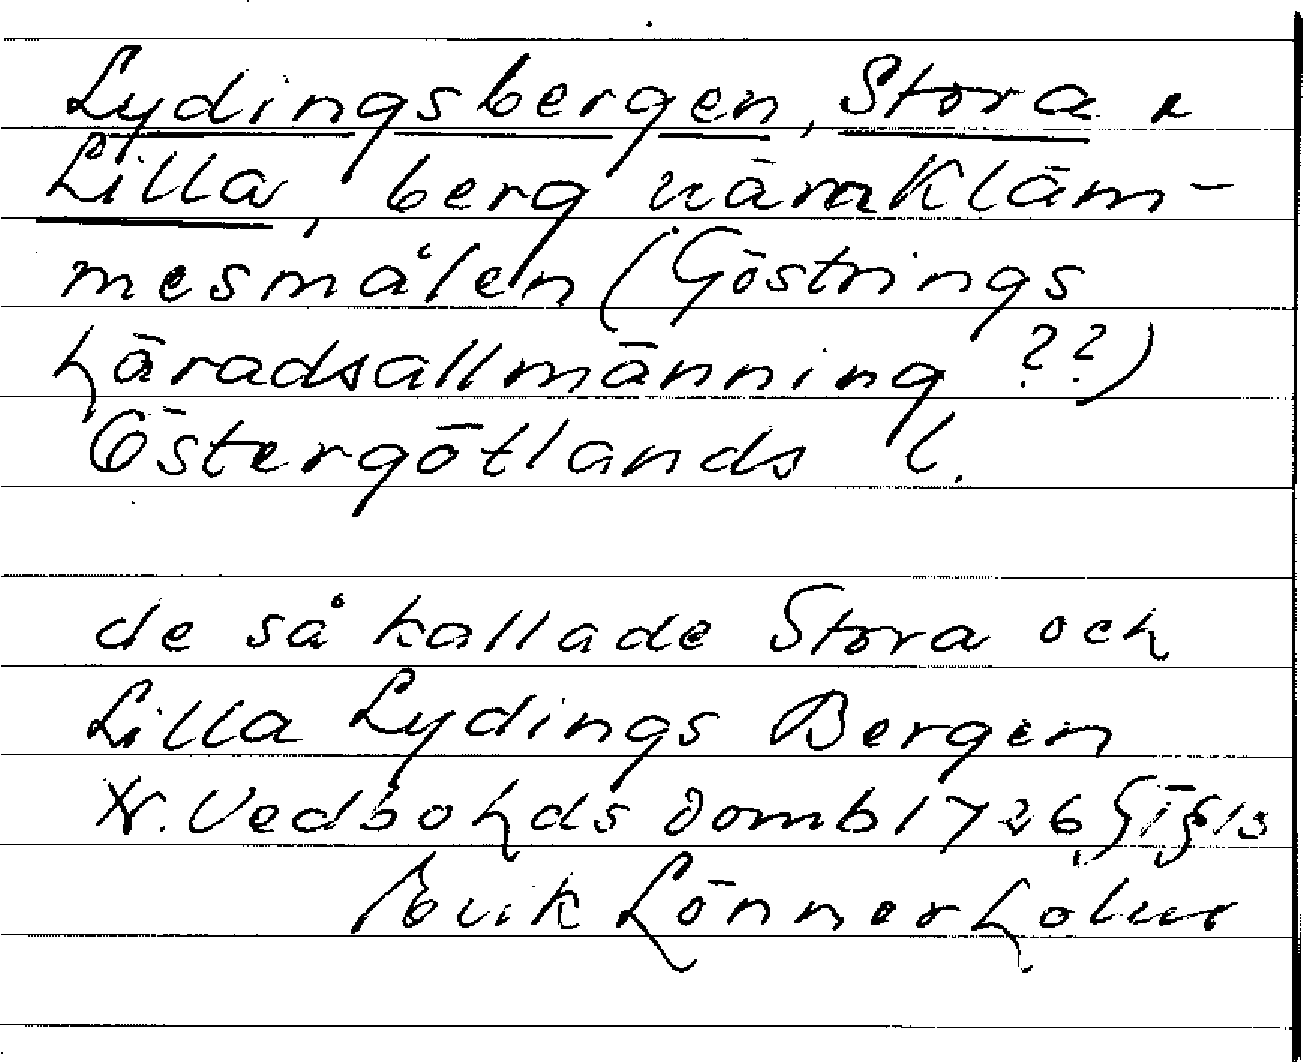 Lydingsbergen, Stora &
Lilla, berg nära Kläm-
mesmålen (Göstrings
häradsallmänning ??)
Östergötlands l.
de så kallade Stora och
Lilla Lydings Bergen
N. Vedbo hds domb 1726 § 13
Erik Lönnerholm